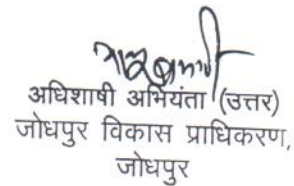 अधिशाषी अभियंता (उत्तर)
जोधपुर विकास प्राधिकरण,
जोधपुर